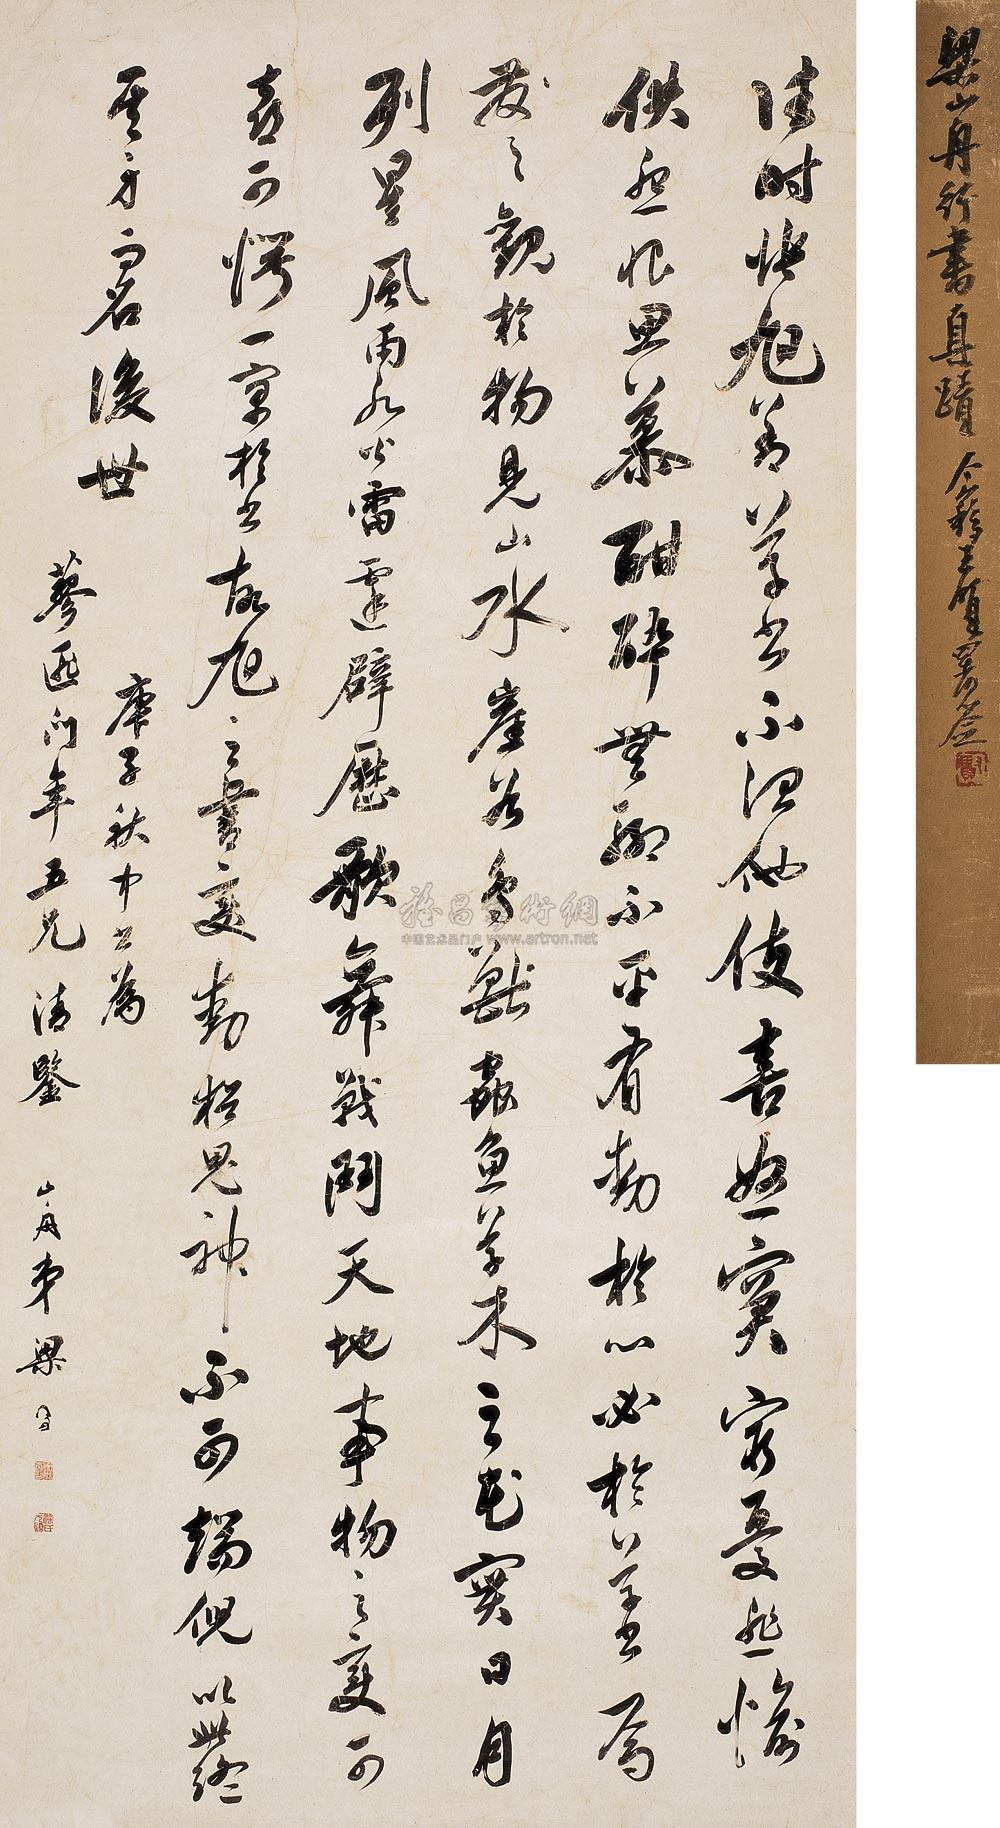 往時張旭善草書不治他伎喜怒窘窮憂悲愉
佚怨恨思慕酣醉無聊不平有動於心必於草書焉
發之觀於物見山水崖谷鳥獸蟲魚草木之花實日月
列星風雨水火雷霆辟歷歌舞戰鬥天地事物之變可
喜可愕一寓於書故旭之書變動猶鬼神不可端倪以此終
其身而名後世
庚子秋中書為
蓼涯門年五兄清鑒 山舟弟梁同書
梁山舟行書真蹟 个簃王賢署簽
雅昌藝術網
中国艺术品门户 www.artron.net